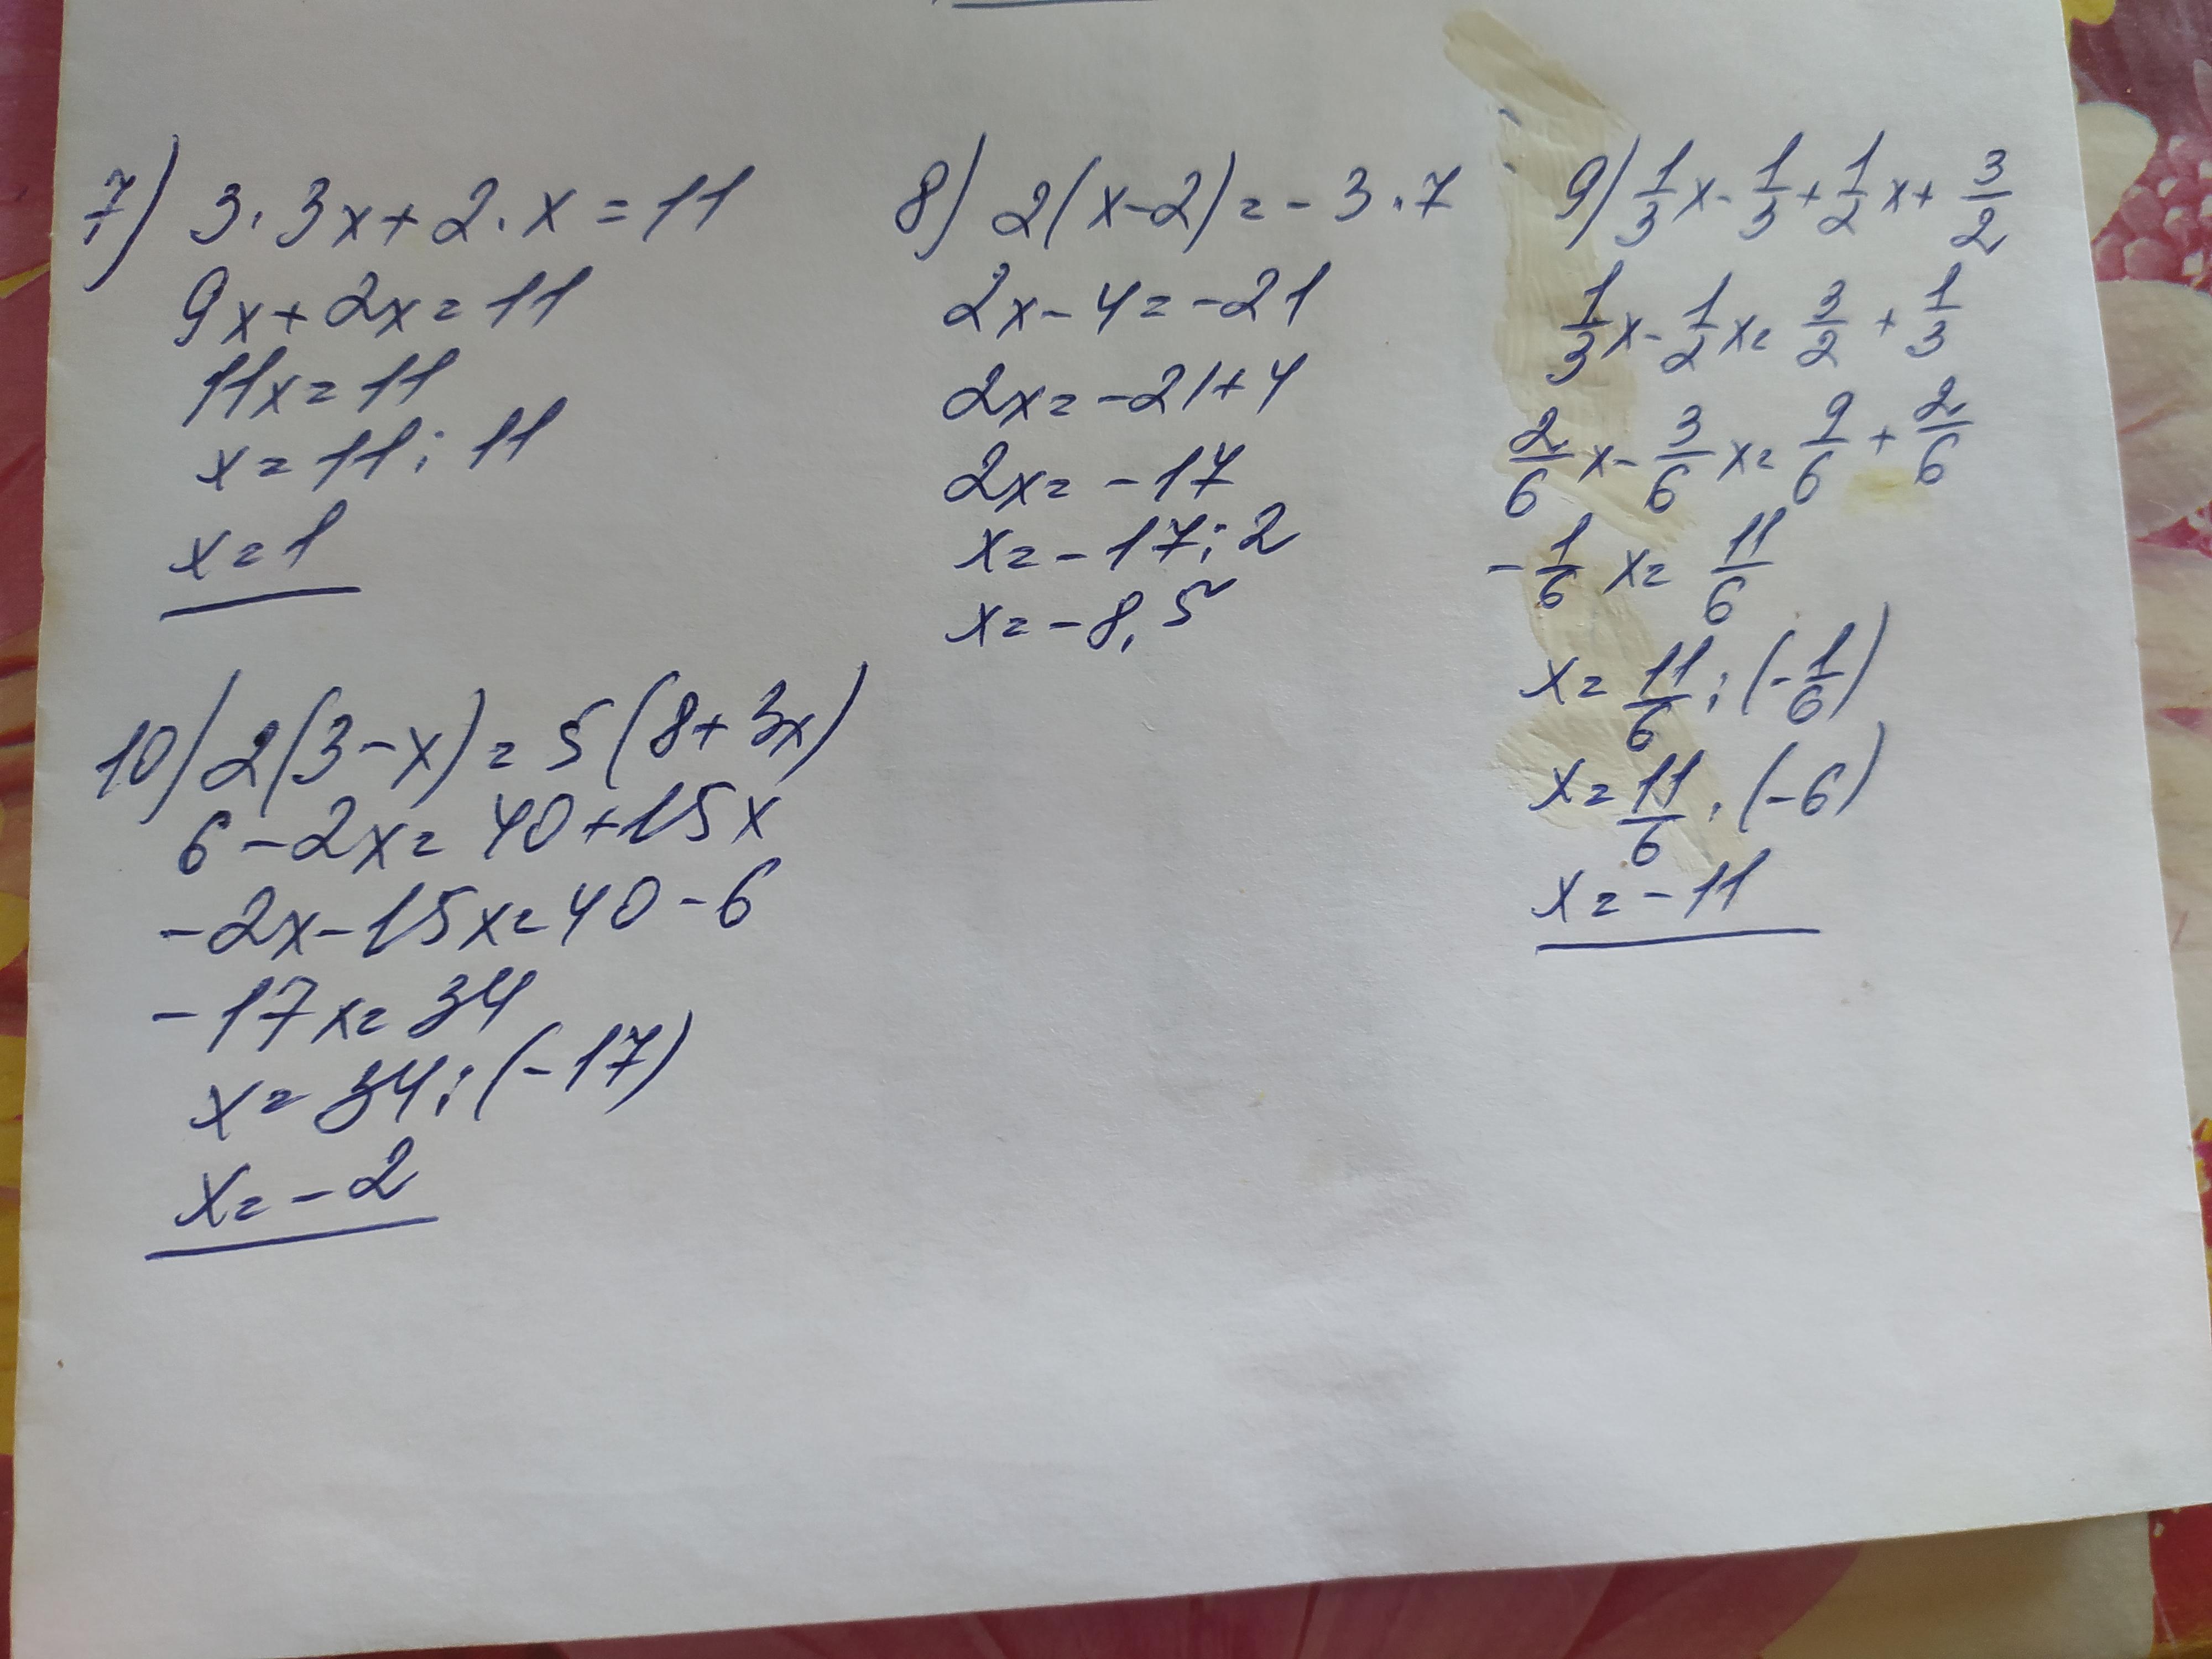 7) 3·3x+2·x=11
9x+2x=11
11x=11
x=11:11
x=1
8) 2(x-2)=-3·7
2x-4=-21
2x=-21+4
2x=-17
x=-17:2
x=-8,5
9) 1/3x-1/3+1/2x+3/2
1/3x-1/2x=3/2+1/3
2/6x-3/6x=9/6+2/6
-1/6x=11/6
x=11/6:(-1/6)
x=11/6·(-6)
x=-11
10) 2(3-x)=5(8+3x)
6-2x=40+15x
-2x-15x=40-6
-17x=34
x=34:(-17)
x=-2